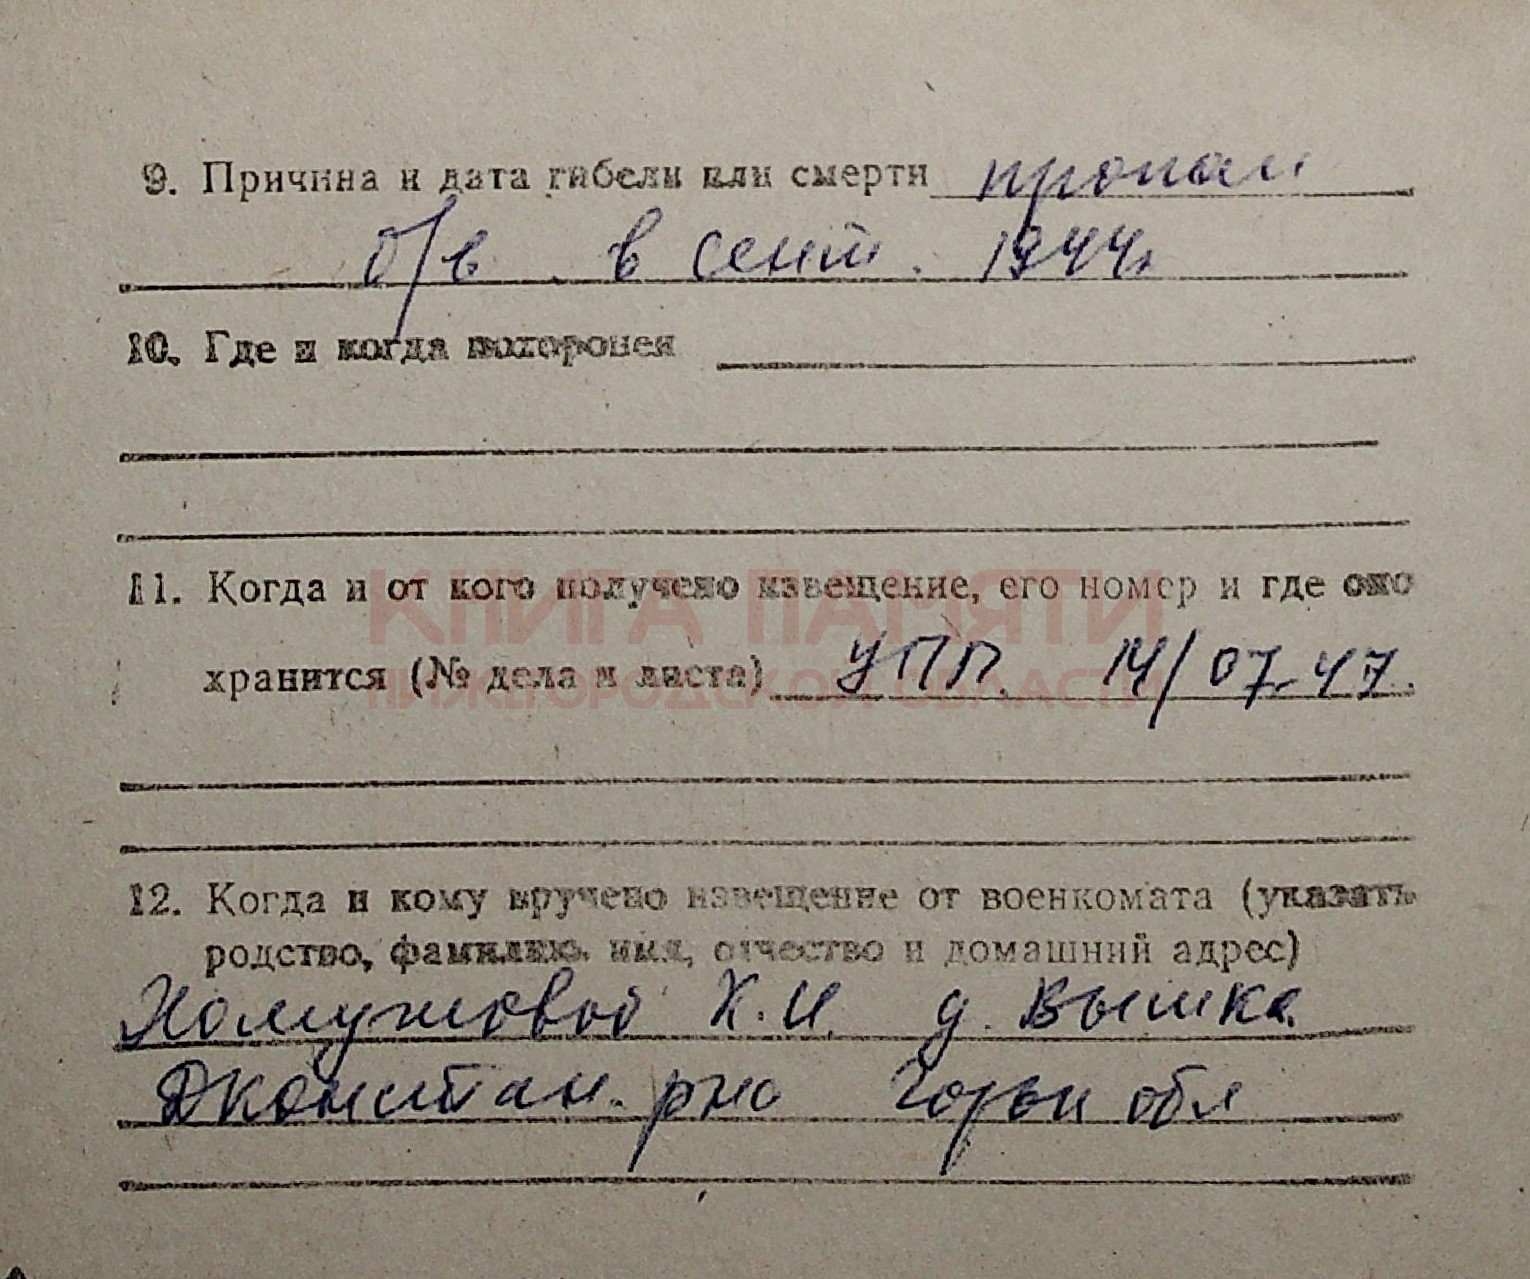 9. Причина и дата гибели или смерти пропал
б/в в сент. 1944г
10. Где и когда похоронен
11. Когда и от кого получено извещение, его номер и где оно
КНИГА ПАМЯТИ
хранится (№ дела и листа) УПП. 14/07.47.
НИЖЕГОРОДСКОЙ ОБЛАСТИ
12. Когда и кому вручено извещение от военкомата (указать
родство, фамилию, имя, отчество и домашний адрес)
Хомутовой К.И. д. Вышка
Дконстан. р-на Горьк обл